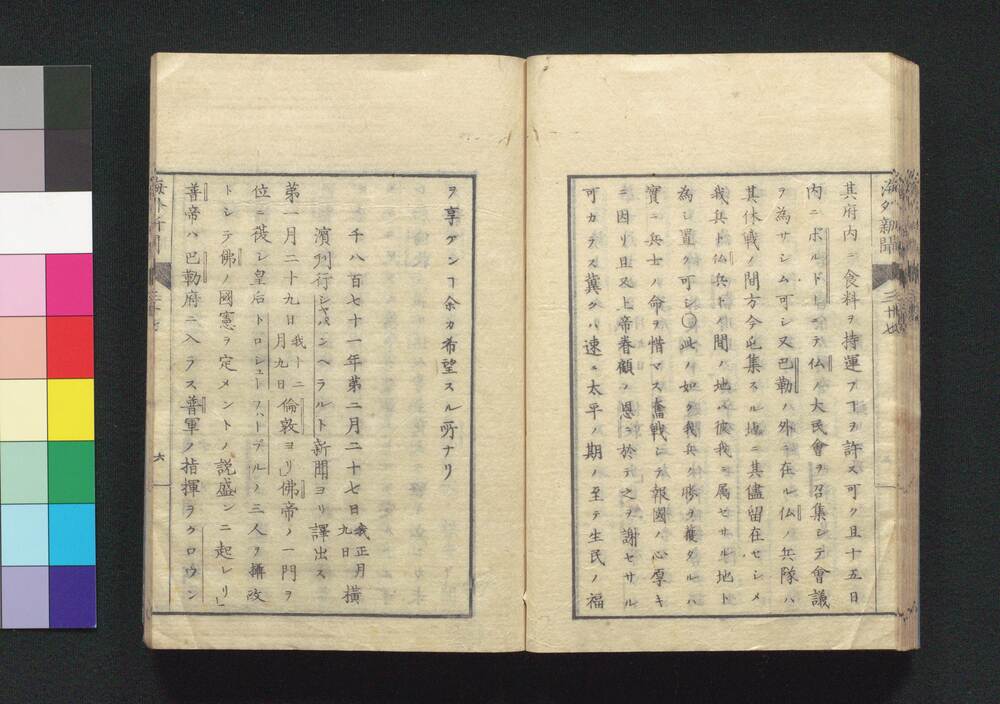 海外新聞
三十七
其府内ニ食料ヲ持運フヿヲ許ス可ク且十五日
内ニボルドーニテ仏ノ大民會ヲ召集シテ會議
ヲ為サシム可シ又巴勒ハ外ニ在ル仏ノ兵隊ハ
其休戦ノ間方今屯集スル地ニ其儘留在セシメ
我兵ト仏兵トノ間ハ地ハ彼我ニ属セサル地ト
為シ置ク可シ〇此ノ如ク我兵ノ勝ヲ獲タルハ
實ニ兵士ノ命ヲ惜マス奮戦シテ報國ノ心厚キ
ニ因リ且又上帝眷顧ノ恩ニ於テ之ヲ謝セサル
可カラス冀クハ速ニ太平ノ期ノ至テ生民ノ福
ヲ享ケンヿ余カ希望スル所ナリ
千八百七十一年第二月二十七日我正月九日横
濱刋行ジャパンヘラルト新聞ヨリ譯出ス
第一月二十九日我十二月九日倫敦ヨリ佛帝ノ一門ヲ
位ニ復シ皇后トロシュートフハーブルノ三人ヲ攝政
トシテ佛ノ國憲ヲ定メントノ説盛ンニ起レリ
普帝ハ巴勒府ニ入ラス普軍ノ指揮ヲクロウン
六